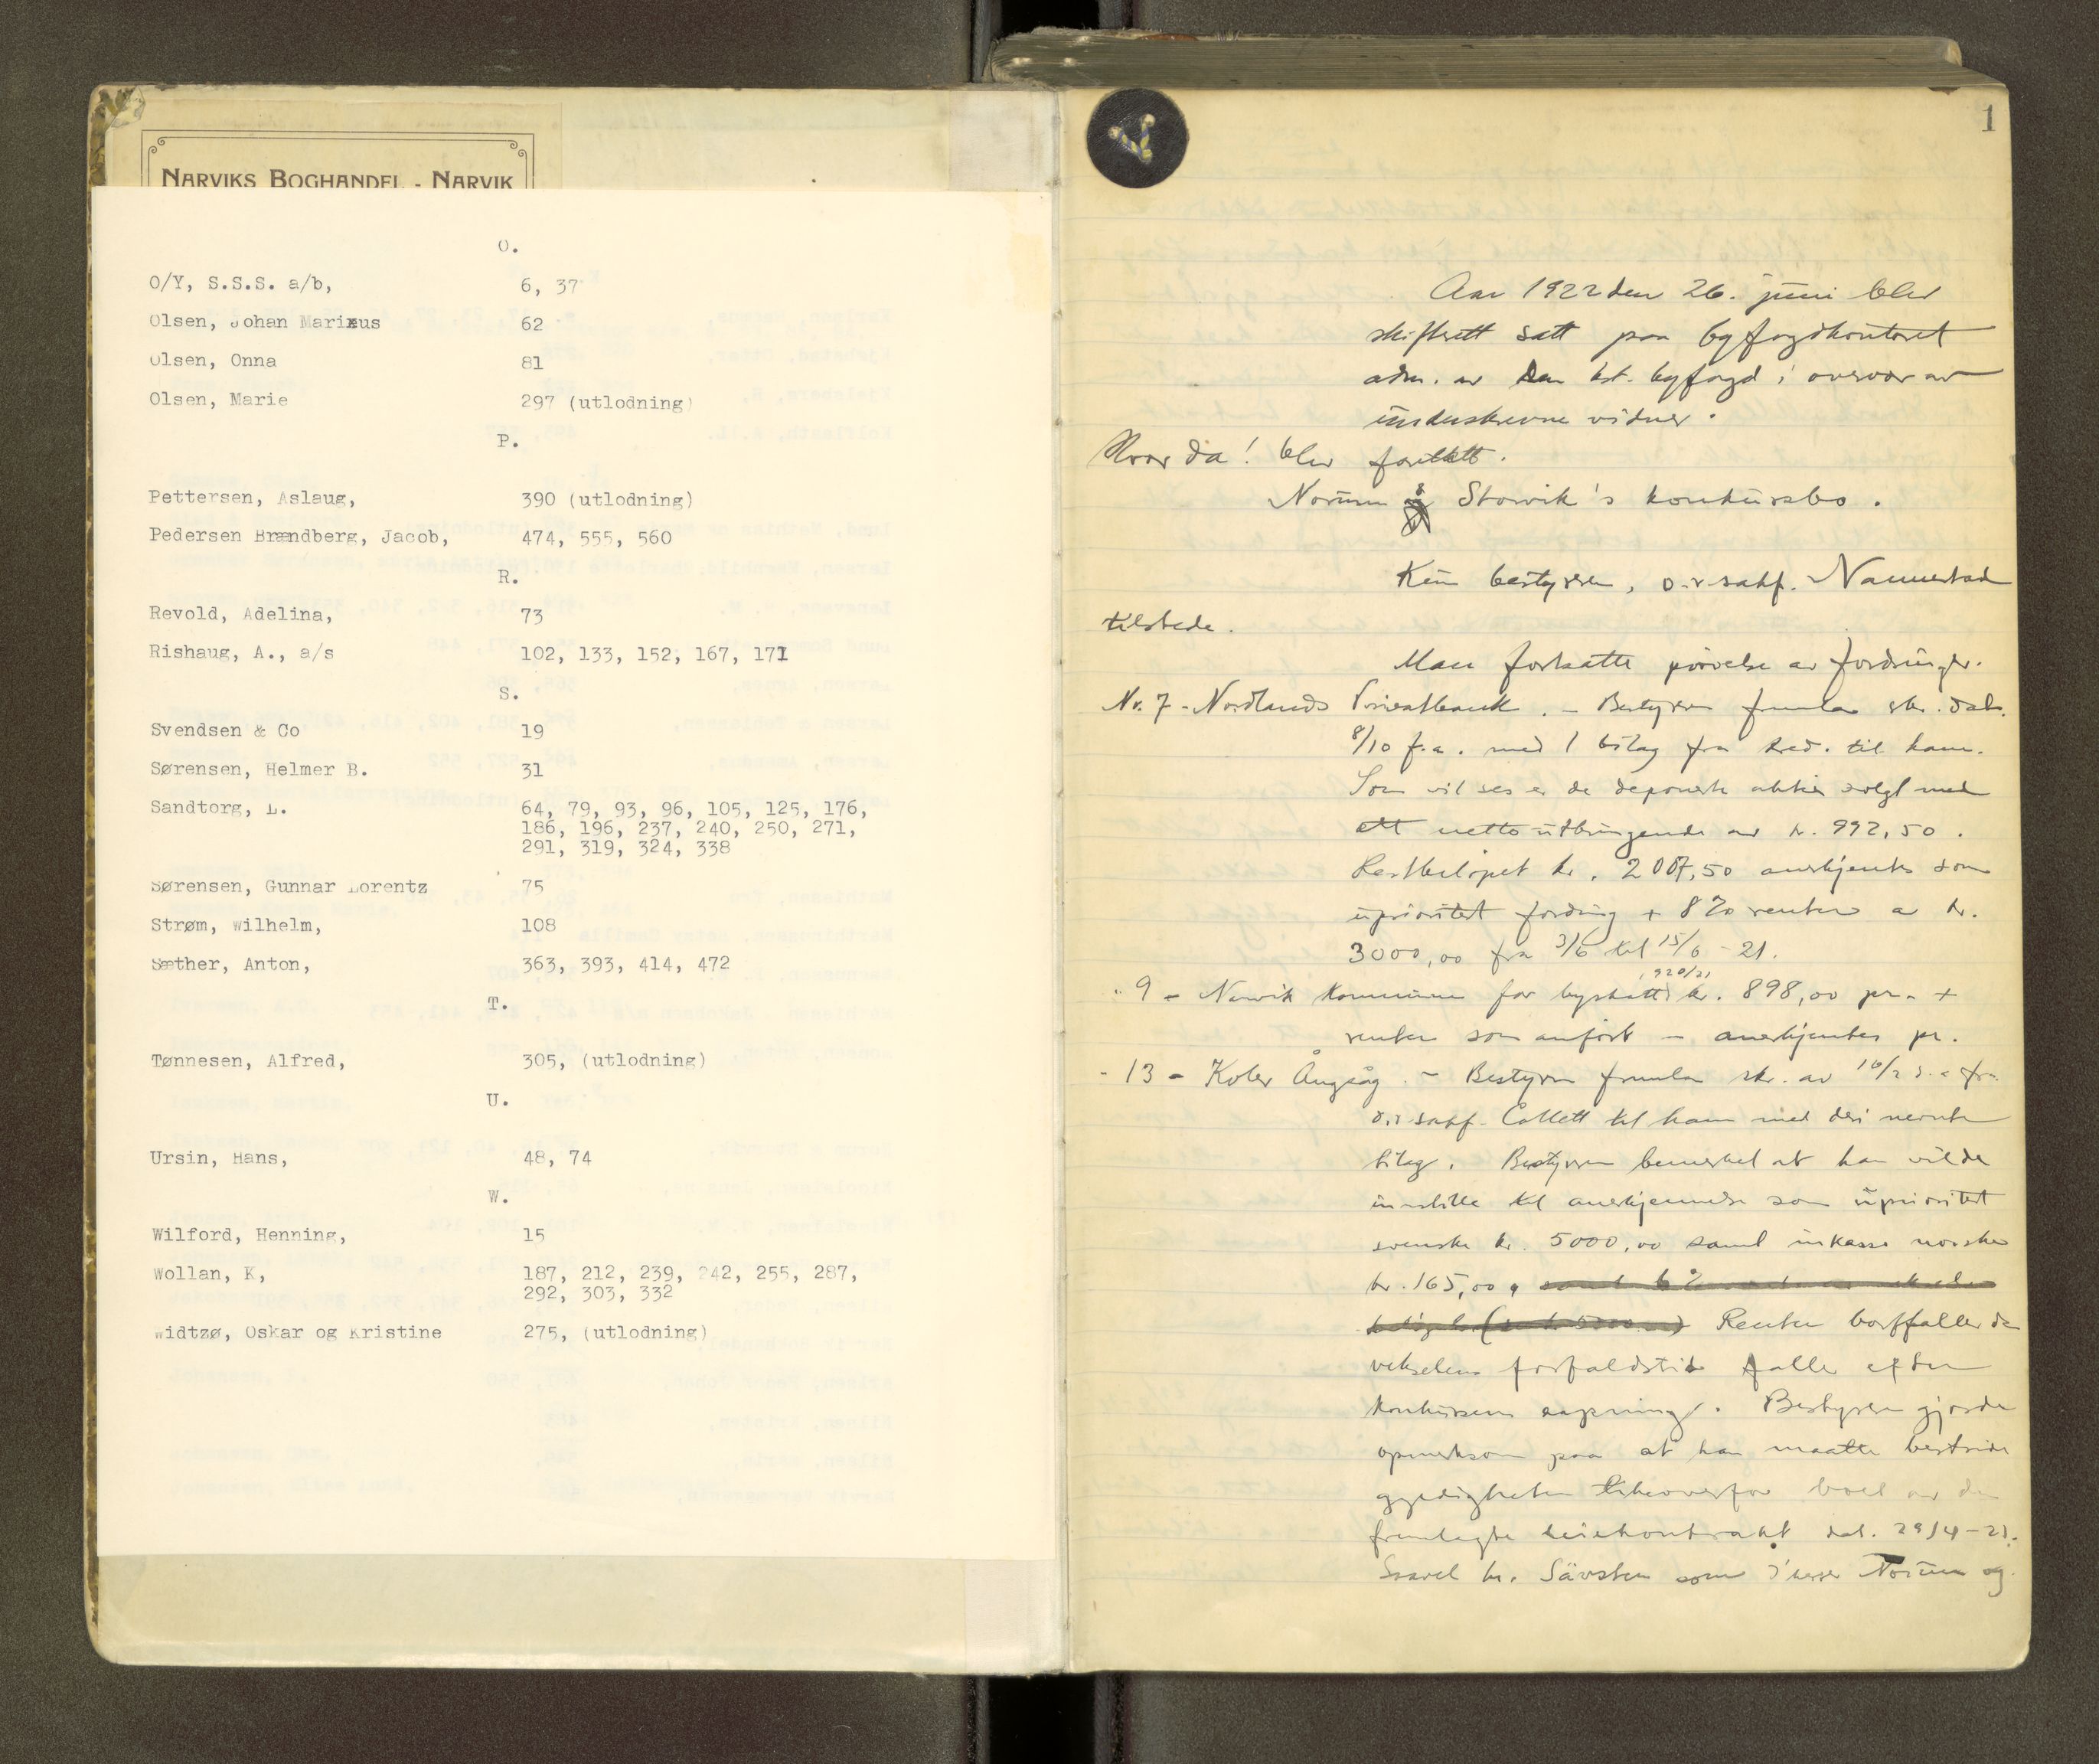 NARVIKS BOGHANDEL - NARVIK
O.
O/Y, S.S.S. a/b, 6, 37
Olsen, Johan Marixus 62
Olsen, Onna 81
Olsen, Marie 297 (utlodning)
P.
Pettersen, Aslaug, 390 (utlodning)
Pedersen Brændberg, Jacob, 474, 555, 560
R.
Revold, Adelina, 73
Rishaug, A., a/s 102, 133, 152, 167, 171
S.
Svendsen & Co 19
Sørensen, Helmer B. 31
Sandtorg, L. 64, 79, 93, 96, 105, 125, 176,
186, 196, 237, 240, 250, 271,
291, 319, 324, 338
Sørensen, Gunnar Lorentz 75
Strøm, Wilhelm, 108
Sæther, Anton, 363, 393, 414, 472
T.
Tønnesen, Alfred, 305, (utlodning)
U.
Ursin, Hans, 48, 74
W.
Wilford, Henning, 15
Wollan, K, 187, 212, 239, 242, 255, 287,
292, 303, 332
Widtzø, Oskar og Kristine 275, (utlodning)
1
Aar 1922 den 26. juni blev
skifterett satt paa byfogdkontoret
adm. av den kst. byfogd i overvær av
underskrevne vidner.
Hvor da! blev foretatt.
Norum & Storvik's konkursbo.
Kun bestyreren, o.r.sakf. Nannestad
tilstede.
Man fortsatte prøvelse av fordringer.
Nr. 7 - Nordlands Privatbank. - Bestyreren fremla skr. dat.
8/10 f.a. med 1 bilag fra kred. til ham.
Som vil ses er de deponerte aktier solgt med
ett netto utbringende av kr. 992,50.
Restbeløpet kr. 2007,50 anerkjentes som
uprioritert fordring + 8% renter av kr.
3000,00 fra 3/6 til 15/6 - 21.
" 9 - Narvik kommune for byskatt 1920/21 kr. 898,00 pr. +
renter som anført - anerkjentes pr.
- 13 - Koler Ångsåg. - Bestyreren fremla skr. av 10/2 d.a. fra
o.r.sakf. Collett til ham med deri nevnte
bilag. Bestyreren bemerket at han vilde
innstille til anerkjennelse som uprioritert
svenske kr. 5000,00 samt inkasso norske
kr. 165,00. Renter bortfaller da
vekselens forfaldstid faller efter
konkursens aapning. Bestyreren gjorde
opmerksom paa at han maatte bestride
gyldigheten likeoverfor boet av den
fremlagte leiekontrakt dat. 29/4-21.
Saavel hr. Sävsten som d'herrer Norum og